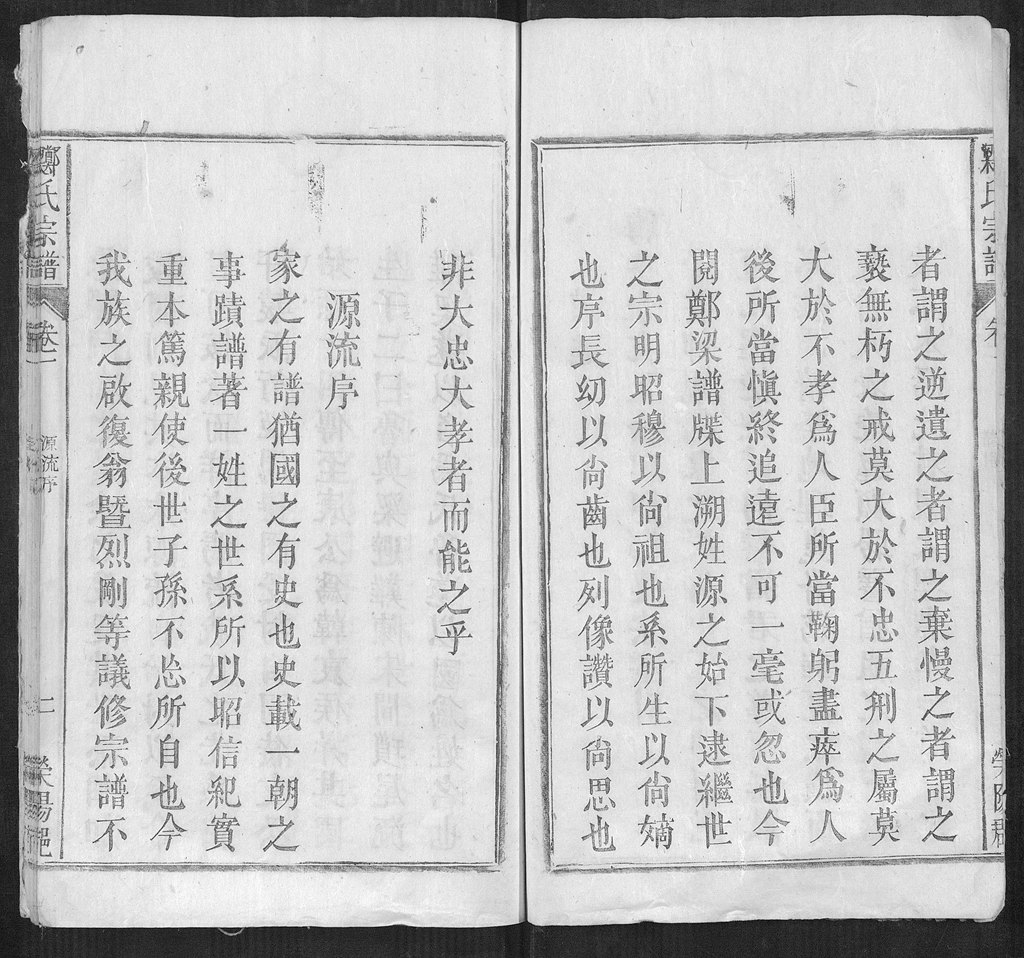 鄭氏宗譜
卷一
滎陽郡
者謂之逆遺之者謂之棄慢之者謂之
褻無朽之戒莫大於不忠五刑之屬莫
大於不孝爲人臣所當鞠躬盡瘁爲人
後所當愼終追遠不可一毫或忽也今
閱鄭梁譜牒上溯姓源之始下逮繼世
之宗明昭穆以尙祖也系所生以尙嫡
也序長幼以尙齒也列像讚以尙思也
非大忠大孝者而能之乎
源流序
家之有譜猶國之有史也史載一朝之
事蹟譜著一姓之世系所以昭信紀實
重本篤親使後世子孫不忘所自也今
我族之啟復翁暨烈剛等議修宗譜不
鄭氏宗譜
卷一
源流序
二
滎陽郡